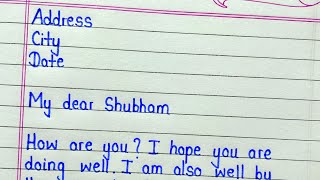 Address
City
Date
My dear Shubham
How are you? I hope you are
doing well. I am also well by